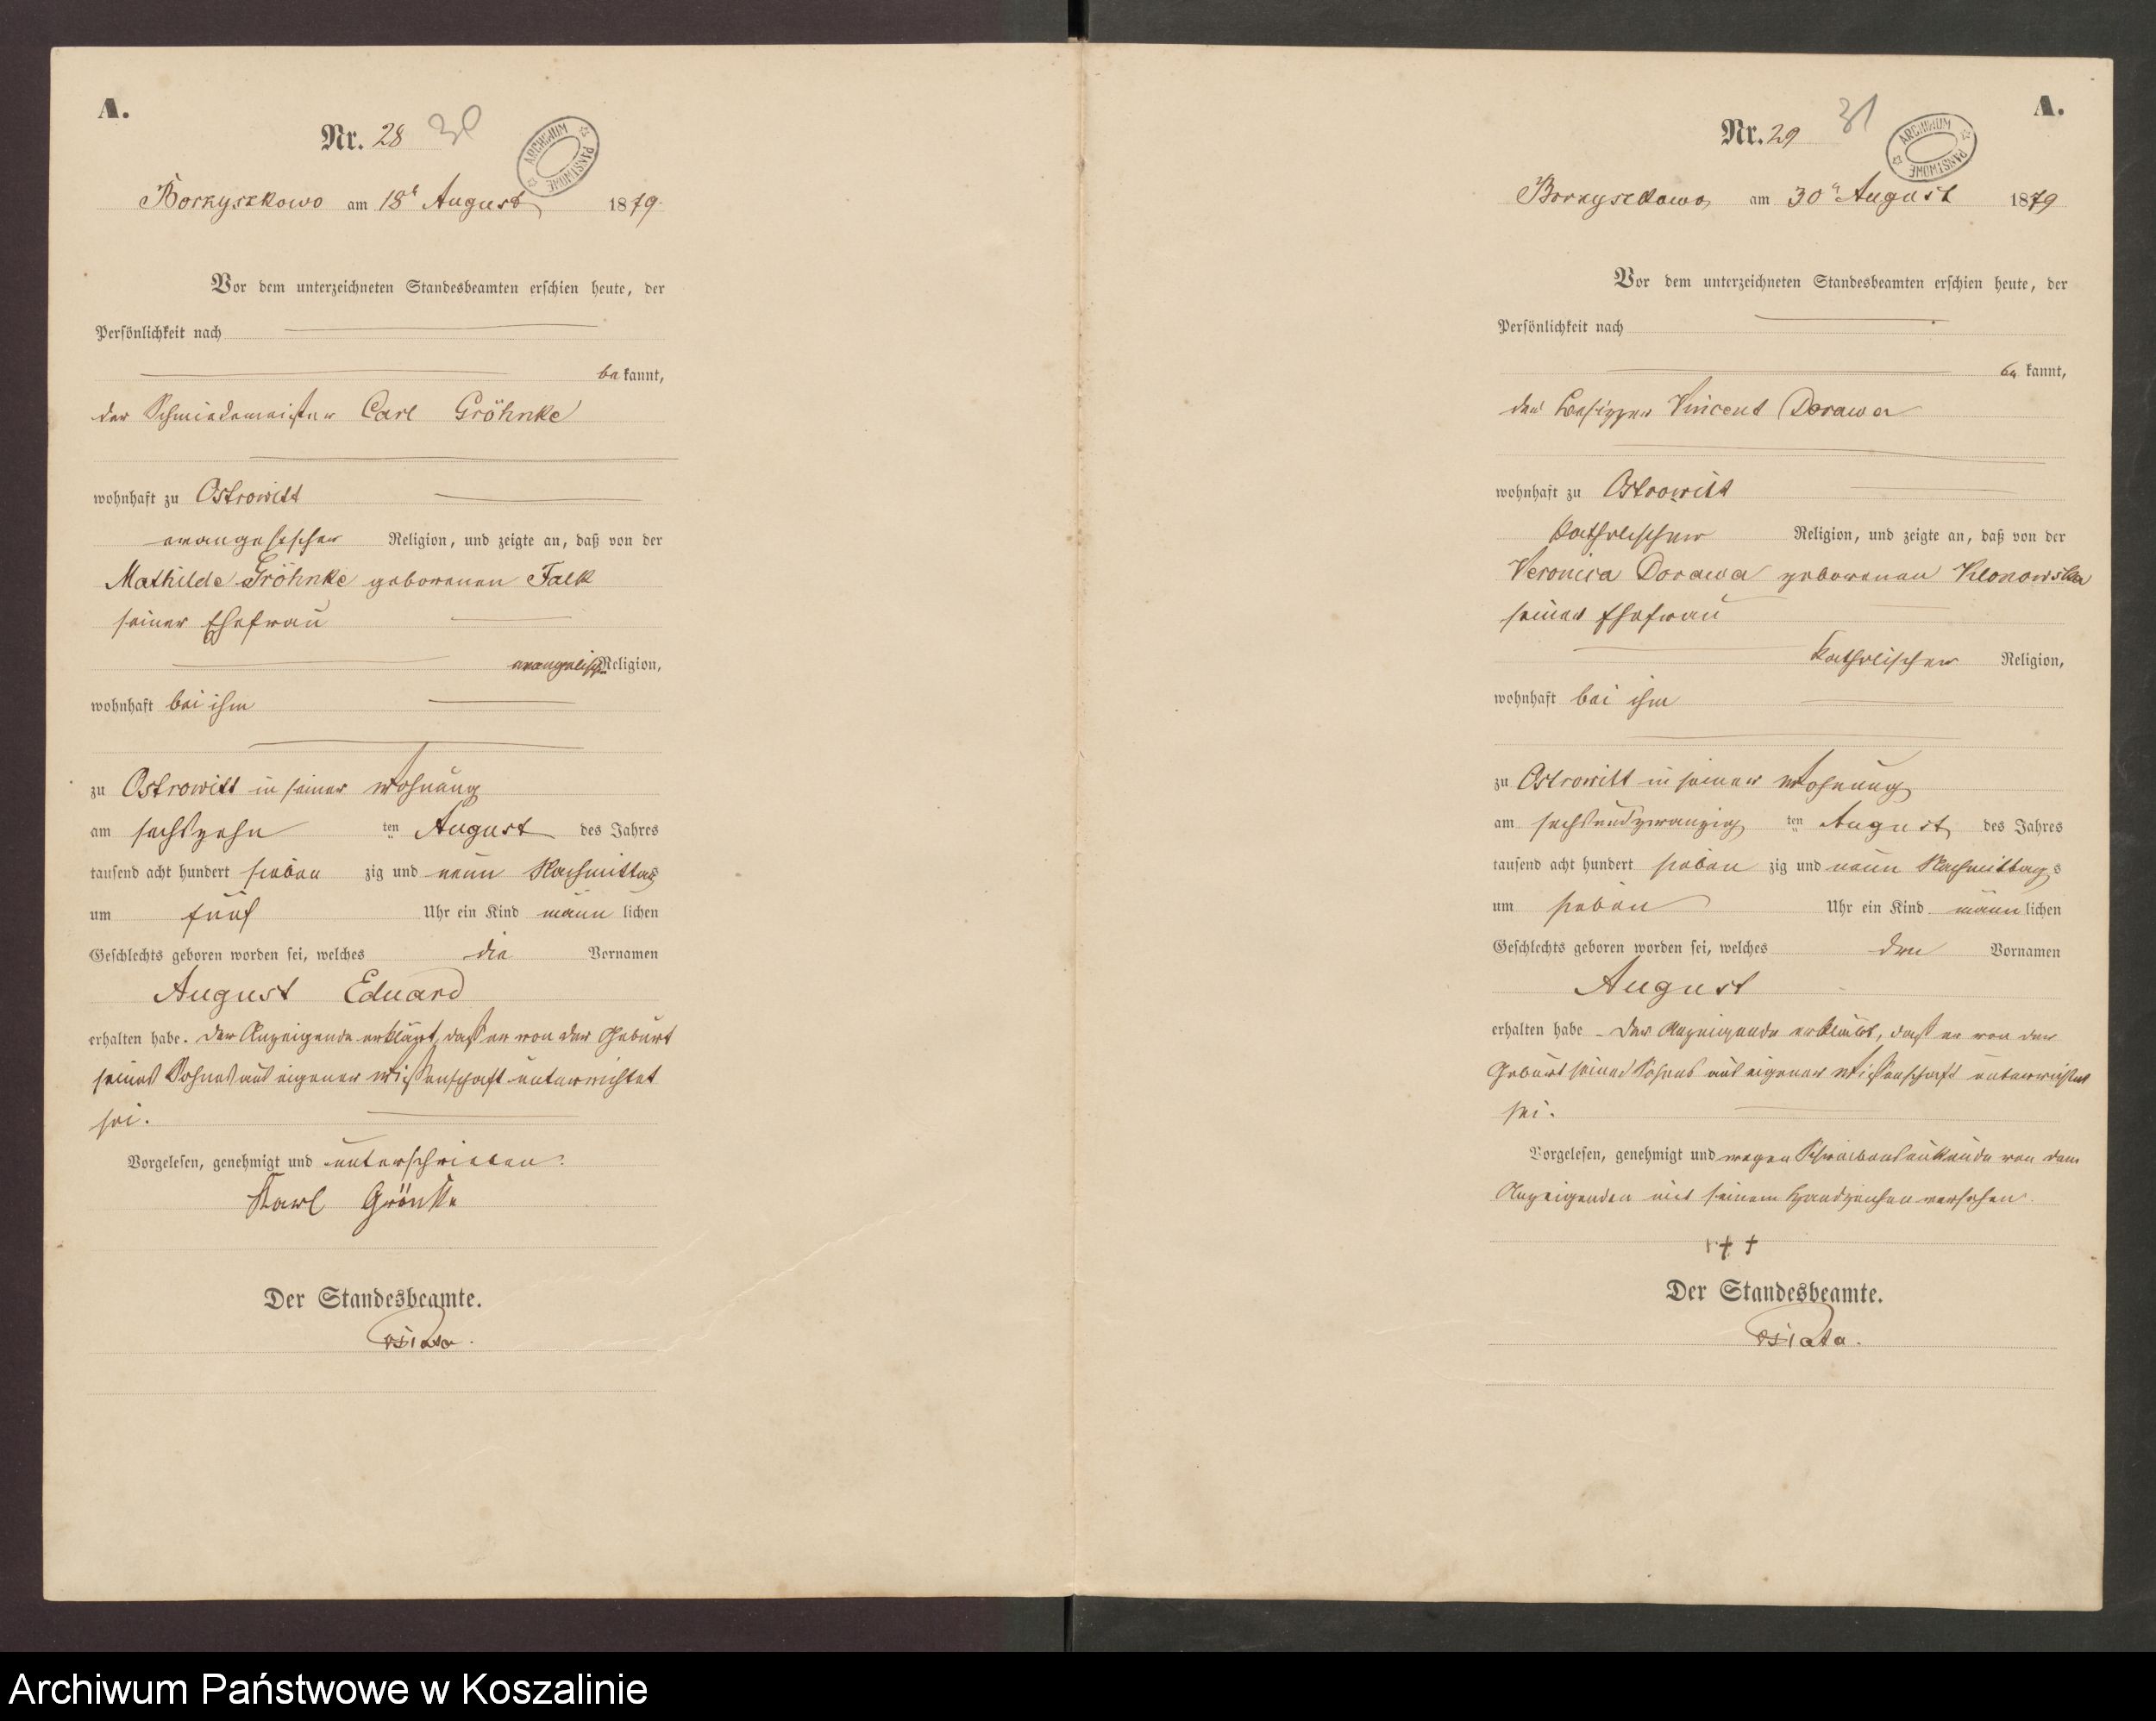 A.
Nr. 28 30
ARCHIWUM PAŃSTWOWE
Borzyszkowo am 18t August 1879.
Vor dem unterzeichneten Standesbeamten erschien heute, der
Persönlichkeit nach
be kannt,
der Schmiedemeister Carl Gröhnke
wohnhaft zu Ostrowitt
evangelischer Religion, und zeigte an, daß von der
Mathilde Gröhnke geborenen Falk
seiner Ehefrau
evangelischer Religion,
wohnhaft bei ihm
zu Ostrowitt in seiner Wohnung
am sechszehn ten August des Jahres
tausend acht hundert sieben zig und neun Nachmittags
um fünf Uhr ein Kind männ lichen
Geschlechts geboren worden sei, welches die Vornamen
August Eduard
erhalten habe. Der Anzeigende erklärt, daß er von der Geburt
seines Sohnes aus eigener Wissenschaft unterrichtet
sei.
Vorgelesen, genehmigt und unterschrieben.
Karl Grönke
Der Standesbeamte.
A.
Nr. 29 31
ARCHIWUM PAŃSTWOWE
Borzyszkowo am 30t August 1879
Vor dem unterzeichneten Standesbeamten erschien heute, der
Persönlichkeit nach
be kannt,
der Besitzer Vincent Dorawa
wohnhaft zu Ostrowitt
katholischer Religion, und zeigte an, daß von der
Veronica Dorawa geborenen Klonowska
seiner Ehefrau
katholischer Religion,
wohnhaft bei ihm
zu Ostrowitt in seiner Wohnung
am sechsundzwanzig ten August des Jahres
tausend acht hundert sieben zig und neun Nachmittags
um sieben Uhr ein Kind männ lichen
Geschlechts geboren worden sei, welches den Vornamen
August
erhalten habe – Der Anzeigende erklärt, daß er von der
Geburt seines Sohnes aus eigener Wissenschaft unterrichtet
sei.
Vorgelesen, genehmigt und wegen Schreibensunkunde von dem
Anzeigenden mit seinem Handzeichen versehen.
+ + +
Der Standesbeamte.
Archiwum Państwowe w Koszalinie